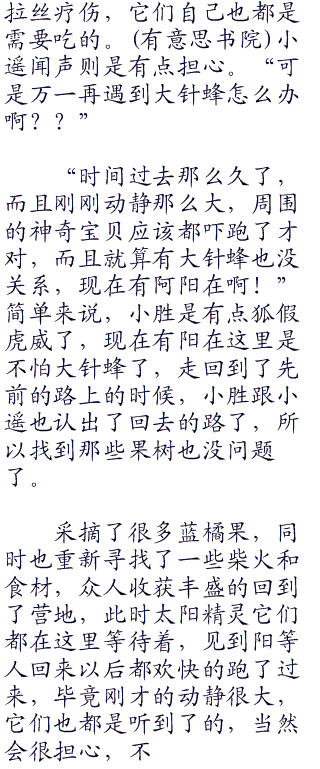 拉丝疗伤，它们自己也都是
需要吃的。(有意思书院)小
遥闻声则是有点担心。“可
是万一再遇到大针蜂怎么办
啊？？”
“时间过去那么久了，
而且刚刚动静那么大，周围
的神奇宝贝应该都吓跑了才
对，而且就算有大针蜂也没
关系，现在有阿阳在啊！”
简单来说，小胜是有点狐假
虎威了，现在有阳在这里是
不怕大针蜂了，走回到了先
前的路上的时候，小胜跟小
遥也认出了回去的路了，所
以找到那些果树也没问题
了。
采摘了很多蓝橘果，同
时也重新寻找了一些柴火和
食材，众人收获丰盛的回到
了营地，此时太阳精灵它们
都在这里等待着，见到阳等
人回来以后都欢快的跑了过
来，毕竟刚才的动静很大，
它们也都是听到了的，当然
会很担心，不